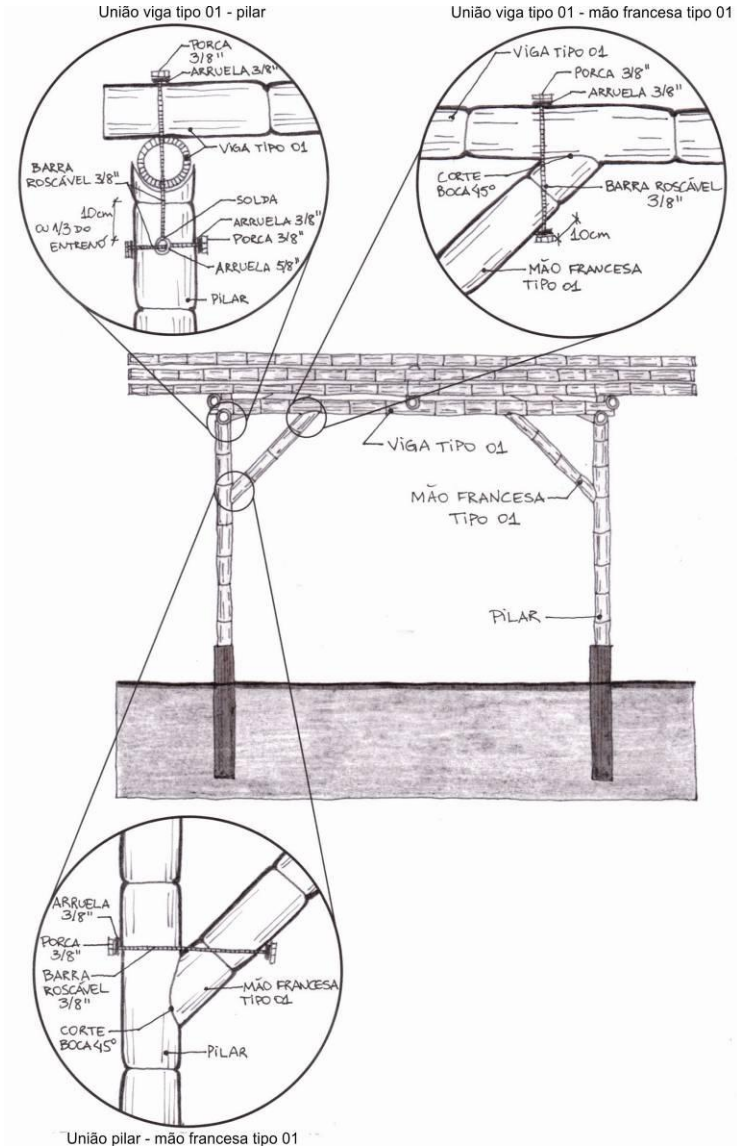 União viga tipo 01 - pilar
PORCA
3/8"
ARRUELA 3/8"
VIGA TIPO 01
BARRA
ROSCÁVEL 3/8"
10cm
OU 1/3 DO
ENTRENÓ
SOLDA
ARRUELA 3/8"
PORCA 3/8"
ARRUELA 5/8"
PILAR
União viga tipo 01 - mão francesa tipo 01
VIGA TIPO 01
PORCA 3/8"
ARRUELA 3/8"
CORTE
BOCA 45°
BARRA ROSCÁVEL
3/8"
10cm
MÃO FRANCESA
TIPO 01
VIGA TIPO 01
MÃO FRANCESA
TIPO 01
PILAR
ARRUELA
3/8"
PORCA
3/8"
BARRA
ROSCÁVEL
3/8"
CORTE
BOCA 45°
MÃO FRANCESA
TIPO 01
PILAR
União pilar - mão francesa tipo 01